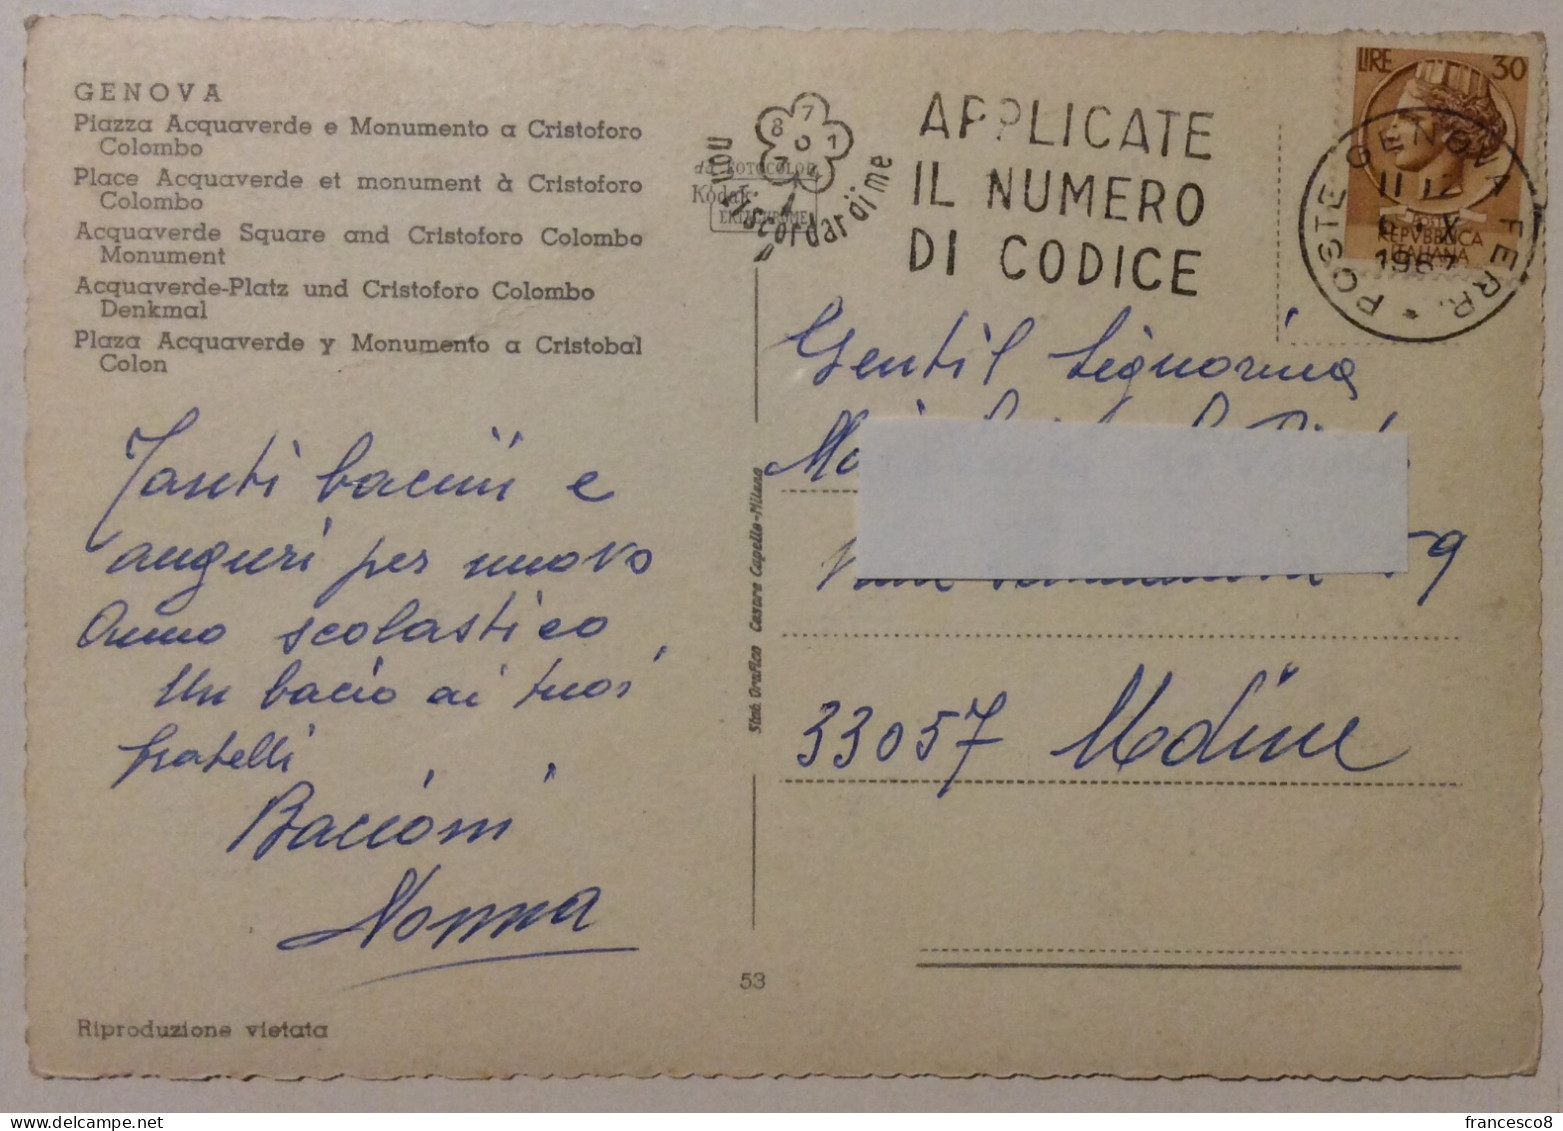 GENOVA
Piazza Acquaverde e Monumento a Cristoforo
Colombo
Place Acquaverde et monument à Cristoforo
Colombo
Acquaverde Square and Cristoforo Colombo
Monument
Acquaverde-Platz und Cristoforo Colombo
Denkmal
Plaza Acquaverde y Monumento a Cristobal
Colon
Tanti bacini e
auguri per nuovo
Anno scolastico
Un bacio ai tuoi
fratelli
Bacioni
Nonna
Riproduzione vietata
53
Stab. Grafico Cesare Capello-Milano
da FOTOCOLOR
Kodak
EKTACHROME
nontiscordardime
APPLICATE
IL NUMERO
DI CODICE
LIRE 30
POSTE
REPVBBLICA
ITALIANA
POSTE GENOVA FERR. *
11 12
X
1967
Gentil Signorina
9
33057 Udine
francesco8